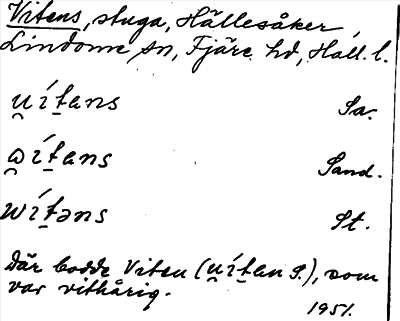 Vitens, stuga, Hällesåker,
Lindome sn, Fjäre hd, Hall. l.
u̯ít̠ans Sa.
ω̯ít̠ans Sand.
wít̠əns St.
Där bodde Viten (u̯ít̠an S.), som
var vithårig.
1951.